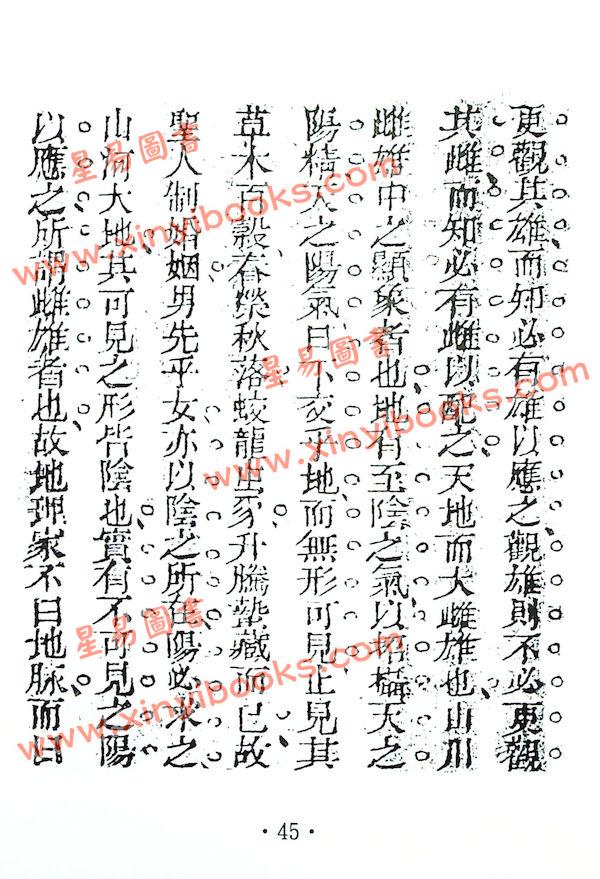 更觀其雄而知必有雄以應之觀雄則不必更觀
其雌而知必有雌以配之天地一大雌雄也山川
雌雄中之顯象者也地有至陰之氣以招攝天之
陽精天之陽氣日下交乎地而無形可見止見其
草木百穀春榮秋落蛟龍虫豸升騰蟄藏而已故
聖人制婚姻男先乎女亦以陰之所在陽必求之
山河大地其可見之形皆陰也實有不可見之陽
以應之所謂雌雄者也故地理家不曰地脉而曰
星易圖書
www.xinyibooks.com
星易圖書
www.xinyibooks.com
星易圖書
www.xinyibooks.com
·45·